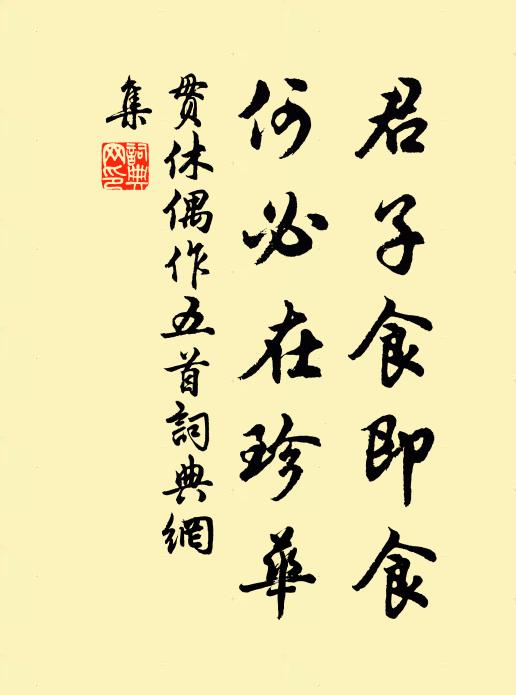 君子食即食
何必在珍華
貫休偶作五首詞典網
集
詞典網印